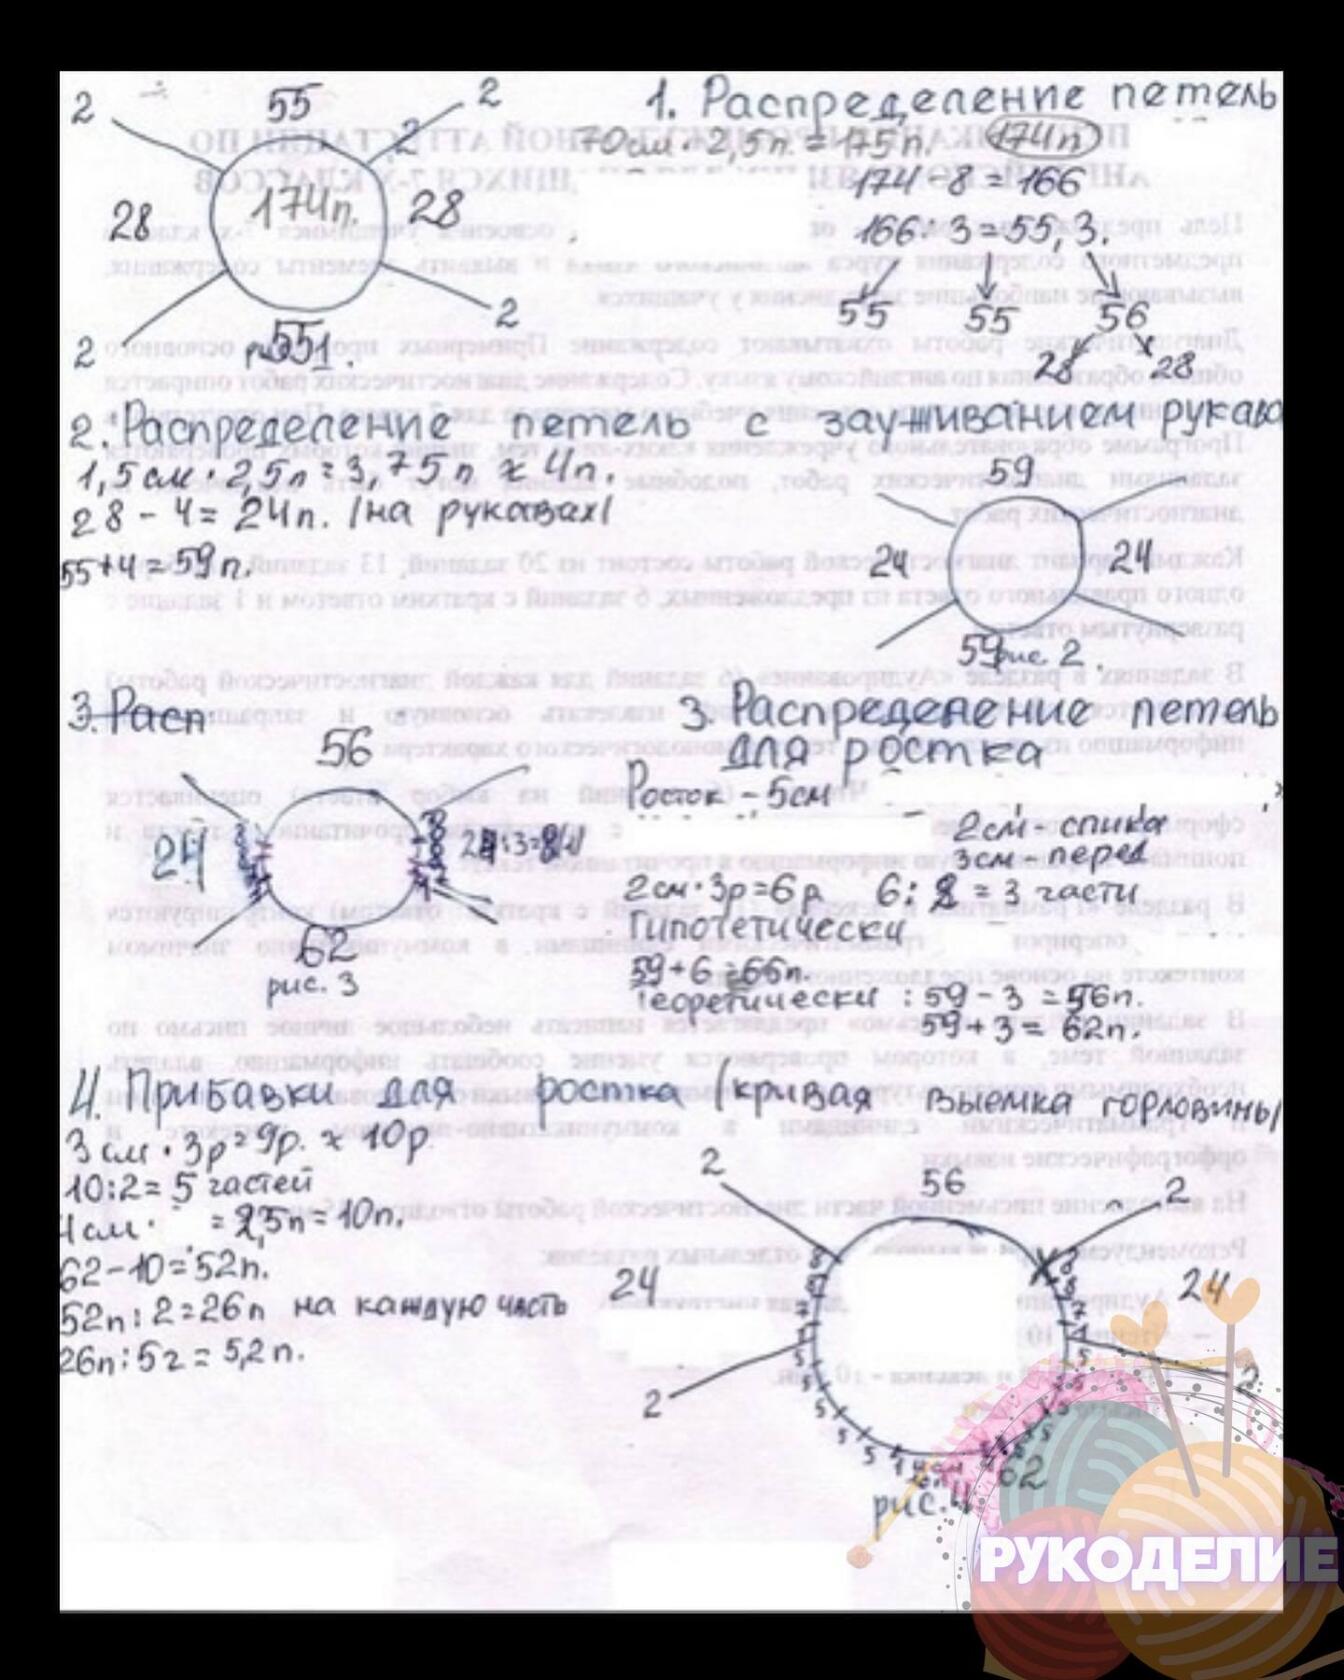 1. Распределение петель
2 55 2
2
70см · 2,5п. = 175п. 174п
174 - 8 = 166
28 174п. 28
166 : 3 = 55,3.
55 55 56
28 28
2 2
55
рис. 1.
2. Распределение петель с зауживанием рукава
1,5см · 2,5п = 3,75п ≈ 4п.
28 - 4 = 24п. /на рукавах/
55+4=59п.
59
24 24
59
рис. 2.
3. Расп
3. Распределение петель
для ростка
56
Росток - 5см
24
2см - спинка
3см - перед
2см · 3р = 6р 6 : 2 = 3 части
Гипотетически
59 + 6 = 66п.
Теоретически : 59 - 3 = 56п.
59 + 3 = 62п.
62
рис. 3
4. Прибавки для ростка /кривая выемка горловины/
3см · 3р = 9р. ≈ 10р.
10:2= 5 частей
4см · = 2,5п = 10п.
62-10=52п.
52п : 2=26п на каждую часть
26п : 5г = 5,2п.
2 56 2
24 24
8 8
8 8
7 7
1 1
5 5
2 2
5 5
5 5
5 5
1 4см
62
рис. 4
РУКОДЕЛИЕ